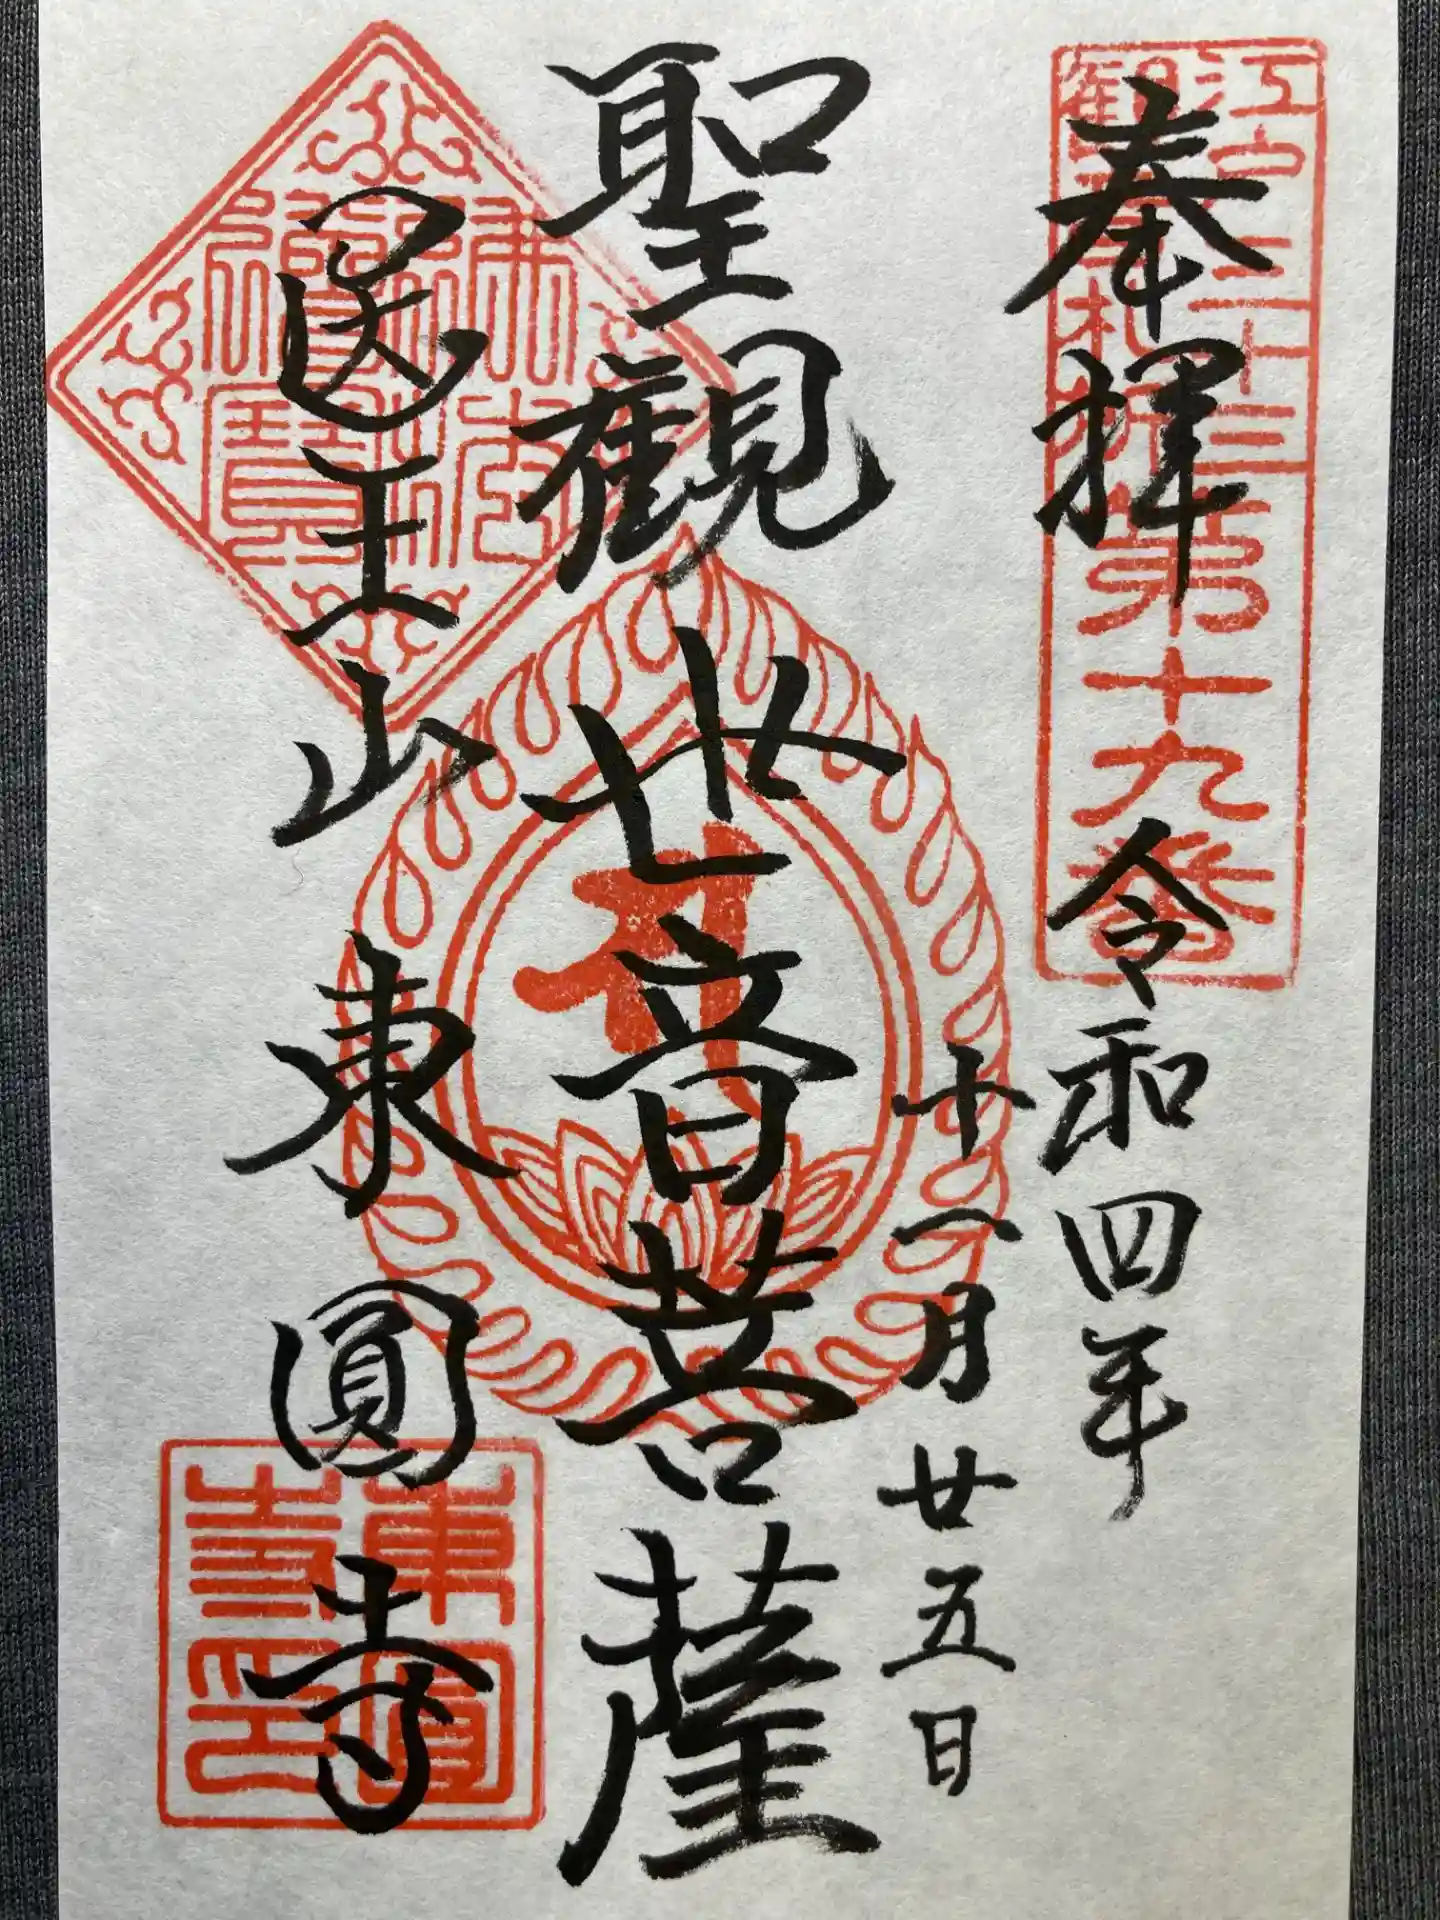 奉拝
令和四年
十一月廿五日
聖観世音菩薩
医王山 東圓寺
江戸三十三
観音札所
第十九番
東圓
寺印